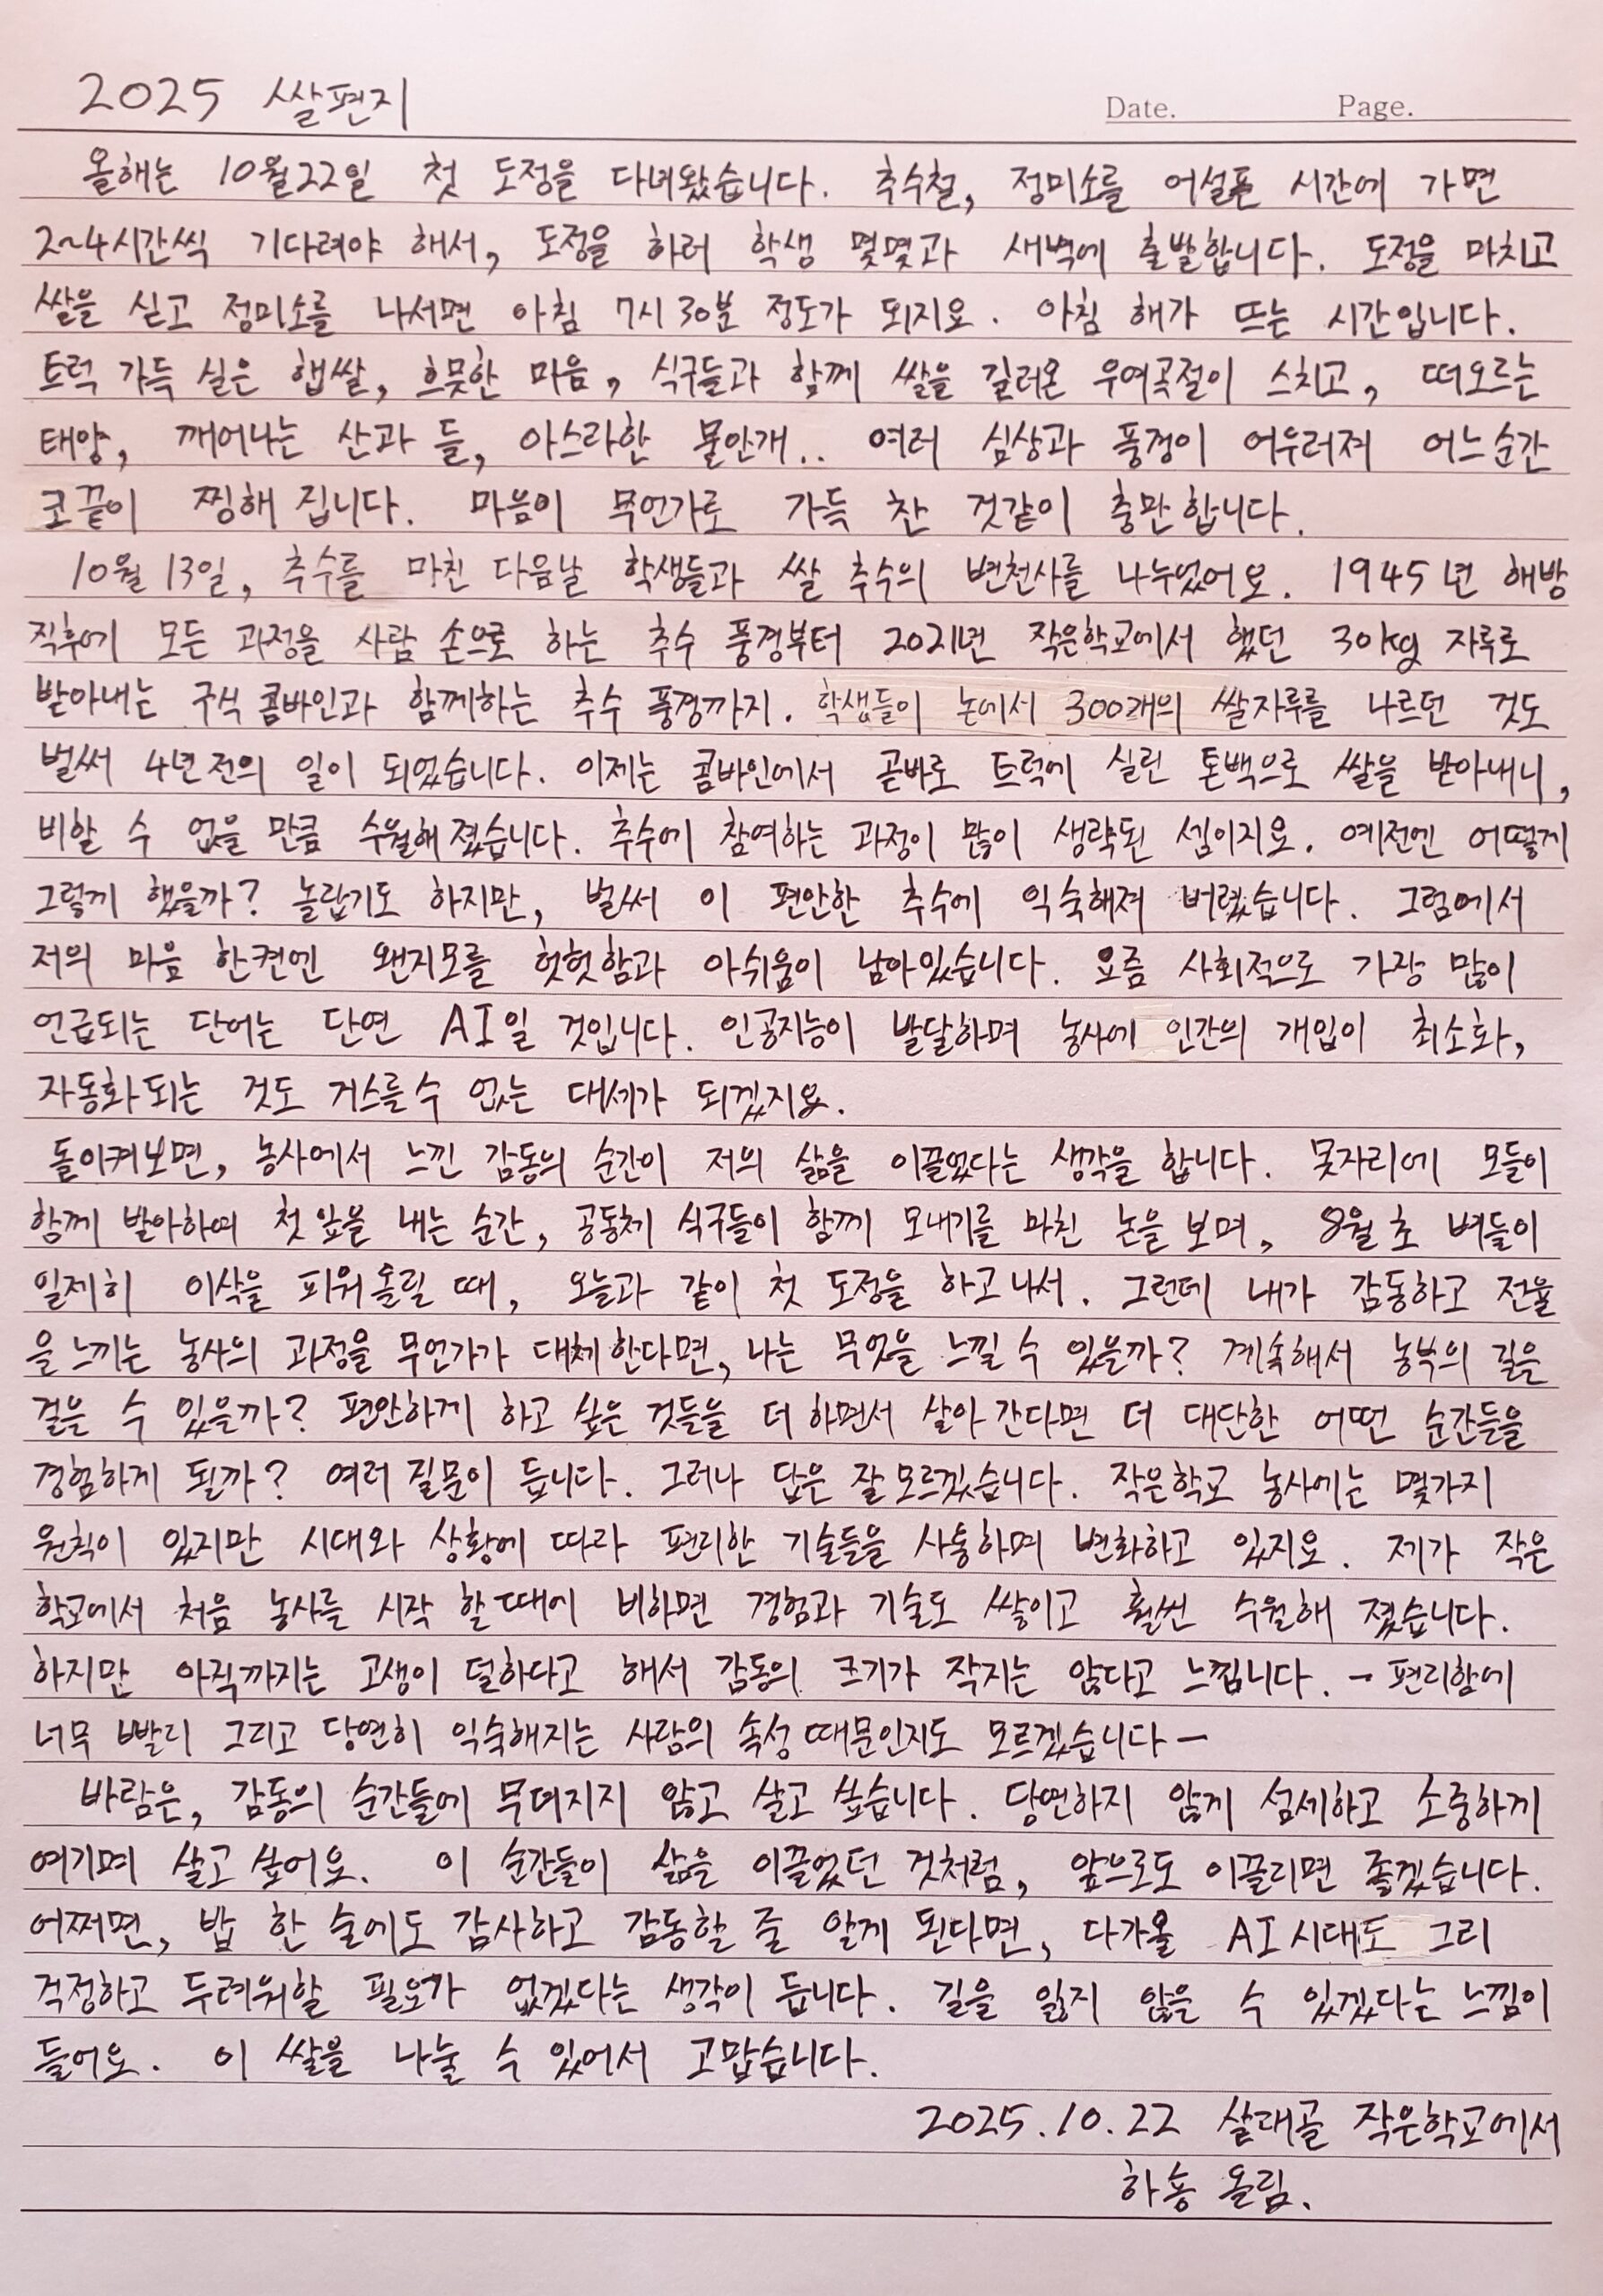 2025 쌀편지
Date. Page.
올해는 10월22일 첫 도정을 다녀왔습니다. 추수철, 정미소를 어설픈 시간에 가면
2~4시간씩 기다려야 해서, 도정을 하러 학생 몇몇과 새벽에 출발합니다. 도정을 마치고
쌀을 싣고 정미소를 나서면 아침 7시 30분 정도가 되지요. 아침 해가 뜨는 시간입니다.
트럭 가득 실은 햅쌀, 흐뭇한 마음, 식구들과 함께 쌀을 길러온 우여곡절이 스치고, 떠오르는
태양, 깨어나는 산과 들, 아스라한 물안개.. 여러 심상과 풍경이 어우러져 어느순간
코끝이 찡해 집니다. 마음이 무언가로 가득 찬 것같이 충만합니다.
10월 13일, 추수를 마친 다음날 학생들과 쌀 추수의 변천사를 나누었어요. 1945년 해방
직후에 모든 과정을 사람 손으로 하는 추수 풍경부터 2021년 작은학교에서 했던 30kg 자루로
받아내는 구식 콤바인과 함께하는 추수 풍경까지. 학생들이 논에서 300개의 쌀자루를 나르던 것도
벌써 4년전의 일이 되었습니다. 이제는 콤바인에서 곧바로 트럭에 실린 톤백으로 쌀을 받아내니,
비할 수 없을 만큼 수월해졌습니다. 추수에 참여하는 과정이 많이 생략된 셈이지요. 예전엔 어떻게
그렇게 했을까? 놀랍기도 하지만, 벌써 이 편안한 추수에 익숙해져 버렸습니다. 그럼에서
저의 마음 한켠엔 왠지모를 헛헛함과 아쉬움이 남아있습니다. 요즘 사회적으로 가장 많이
언급되는 단어는 단연 AI일 것입니다. 인공지능이 발달하며 농사에 인간의 개입이 최소화,
자동화되는 것도 거스를수 없는 대세가 되겠지요.
돌이켜보면, 농사에서 느낀 감동의 순간이 저의 삶을 이끌었다는 생각을 합니다. 못자리에 모들이
함께 발아하며 첫 잎을 내는 순간, 공동체 식구들이 함께 모내기를 마친 논을 보며, 8월 초 벼들이
일제히 이삭을 피워올릴 때, 오늘과 같이 첫 도정을 하고나서. 그런데 내가 감동하고 전율
을 느끼는 농사의 과정을 무언가가 대체한다면, 나는 무엇을 느낄 수 있을까? 계속해서 농부의 길은
걸을 수 있을까? 편안하게 하고 싶은 것들을 더 하면서 살아 간다면 더 대단한 어떤 순간들을
경험하게 될까? 여러 질문이 듭니다. 그러나 답은 잘모르겠습니다. 작은학교 농사에는 몇가지
원칙이 있지만 시대와 상황에 따라 편리한 기술들을 사용하며 변화하고 있지요. 제가 작은
학교에서 처음 농사를 시작 할때에 비하면 경험과 기술도 쌓이고 훨씬 수월해 졌습니다.
하지만 아직까지는 고생이 덜하다고 해서 감동의 크기가 작지는 않다고 느낍니다. - 편리함에
너무 빨리 그리고 당연히 익숙해지는 사람의 속성때문인지도 모르겠습니다-
바람은, 감동의 순간들에 무뎌지지 않고 살고 싶습니다. 당연하지 않게 섬세하고 소중하게
여기며 살고 싶어요. 이 순간들이 삶을 이끌었던 것처럼, 앞으로도 이끌리면 좋겠습니다.
어쩌면, 밥 한 술에도 감사하고 감동할 줄 알게 된다면, 다가올 AI시대도 그리
걱정하고 두려워할 필요가 없겠다는 생각이 듭니다. 길을 잃지 않을 수 있겠다는 느낌이
들어요. 이 쌀을 나눌 수 있어서 고맙습니다.
2025.10.22 살대골 작은학교에서
하숑 올림.